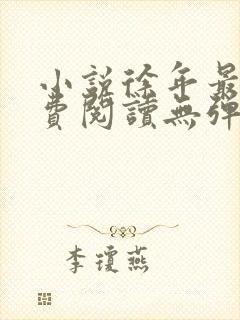 小說徐年最
費閱讀無彈
李瓊燕